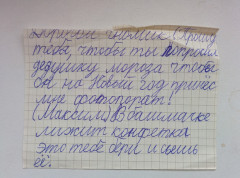 гномик (Прошу
тебя, чтобы ты попросил
дедушку мороза чтобы
он на Новый год принес
мне фотопорат!
(Максим) В башмачке
лижит конфетка
это тебе бери и сьешь
её.